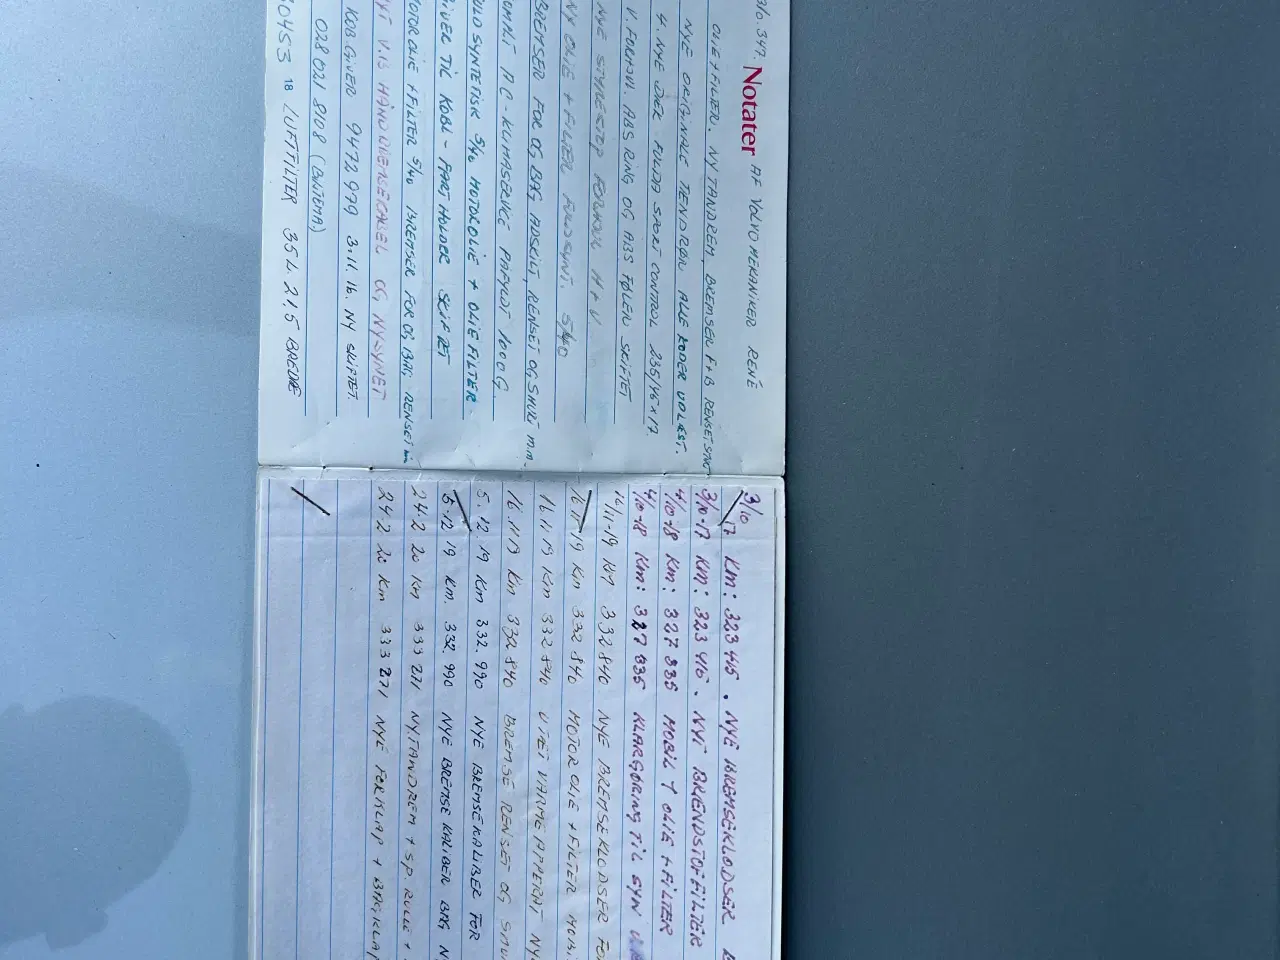 Notater AF VOLVO MEKANIKER RENÉ
OLIE + FILTER. NY TANDREM BREMSER F+B RENSET
NYE ORIGINALE TENDRØR ALLE KODER UDLÆST.
4. NYE DÆK FULDA SPORT CONTROL 235/45x17
V. FORHJUL ABS RING OG ABS FØLER SKIFTET
NYE FORHJUL H+V
NY OLIE + FILTER 5/40
BREMSER FOR OG BAG ADSKILT, RENSET OG SMURT m.m.
A C - KLIMASERVICE PÅFYLDT 1000 G
SYNTETISK 5/40 MOTOROLIE + OLIEFILTER
GIVER TIL KOBL - FARTHOLDER SKIFTET
MOTOROLIE + FILTER 5/40 BREMSER FOR OG BAG RENSET
NYT V. HÅNDBREMSEKABEL OG NYSYNET
KOB. GIVER 9472 979 3.11.16. NY SKIFTET.
028 021 8108 (BILTEMA)
18 LUFTFILTER 35 L. 21.5 BREDE
3/10 17 KM: 323 415. NYE BREMSEKLODSER
3/10-17 KM: 323 415. NYT BRENDSTOFFILTER
4/10-18 KM: 327 335 MOBIL 1 OLIE + FILTER
4/10-18 KM: 327 335 KLARGØRING TIL SYN
14/11-19 KM 332 840 NYE BREMSEKLODSER
16.11-19 KM 332 840 MOTOROLIE + FILTER
16.11.19 KM 332 840 VARMEAPPERAT
16.11 19 KM 332 840 BREMSE RENSET OG
5. 12. 19 KM 332. 990 NYE BREMSEKALIBER FOR
5.12 19 KM. 332. 990 NYE BREMSE KALIBER BAG
24.2. 20 KM 333 271 NY.TANDREM + SP.RULLE +
24.2 20 KM 333 271 NYE FORKLAP + BAGKLAP